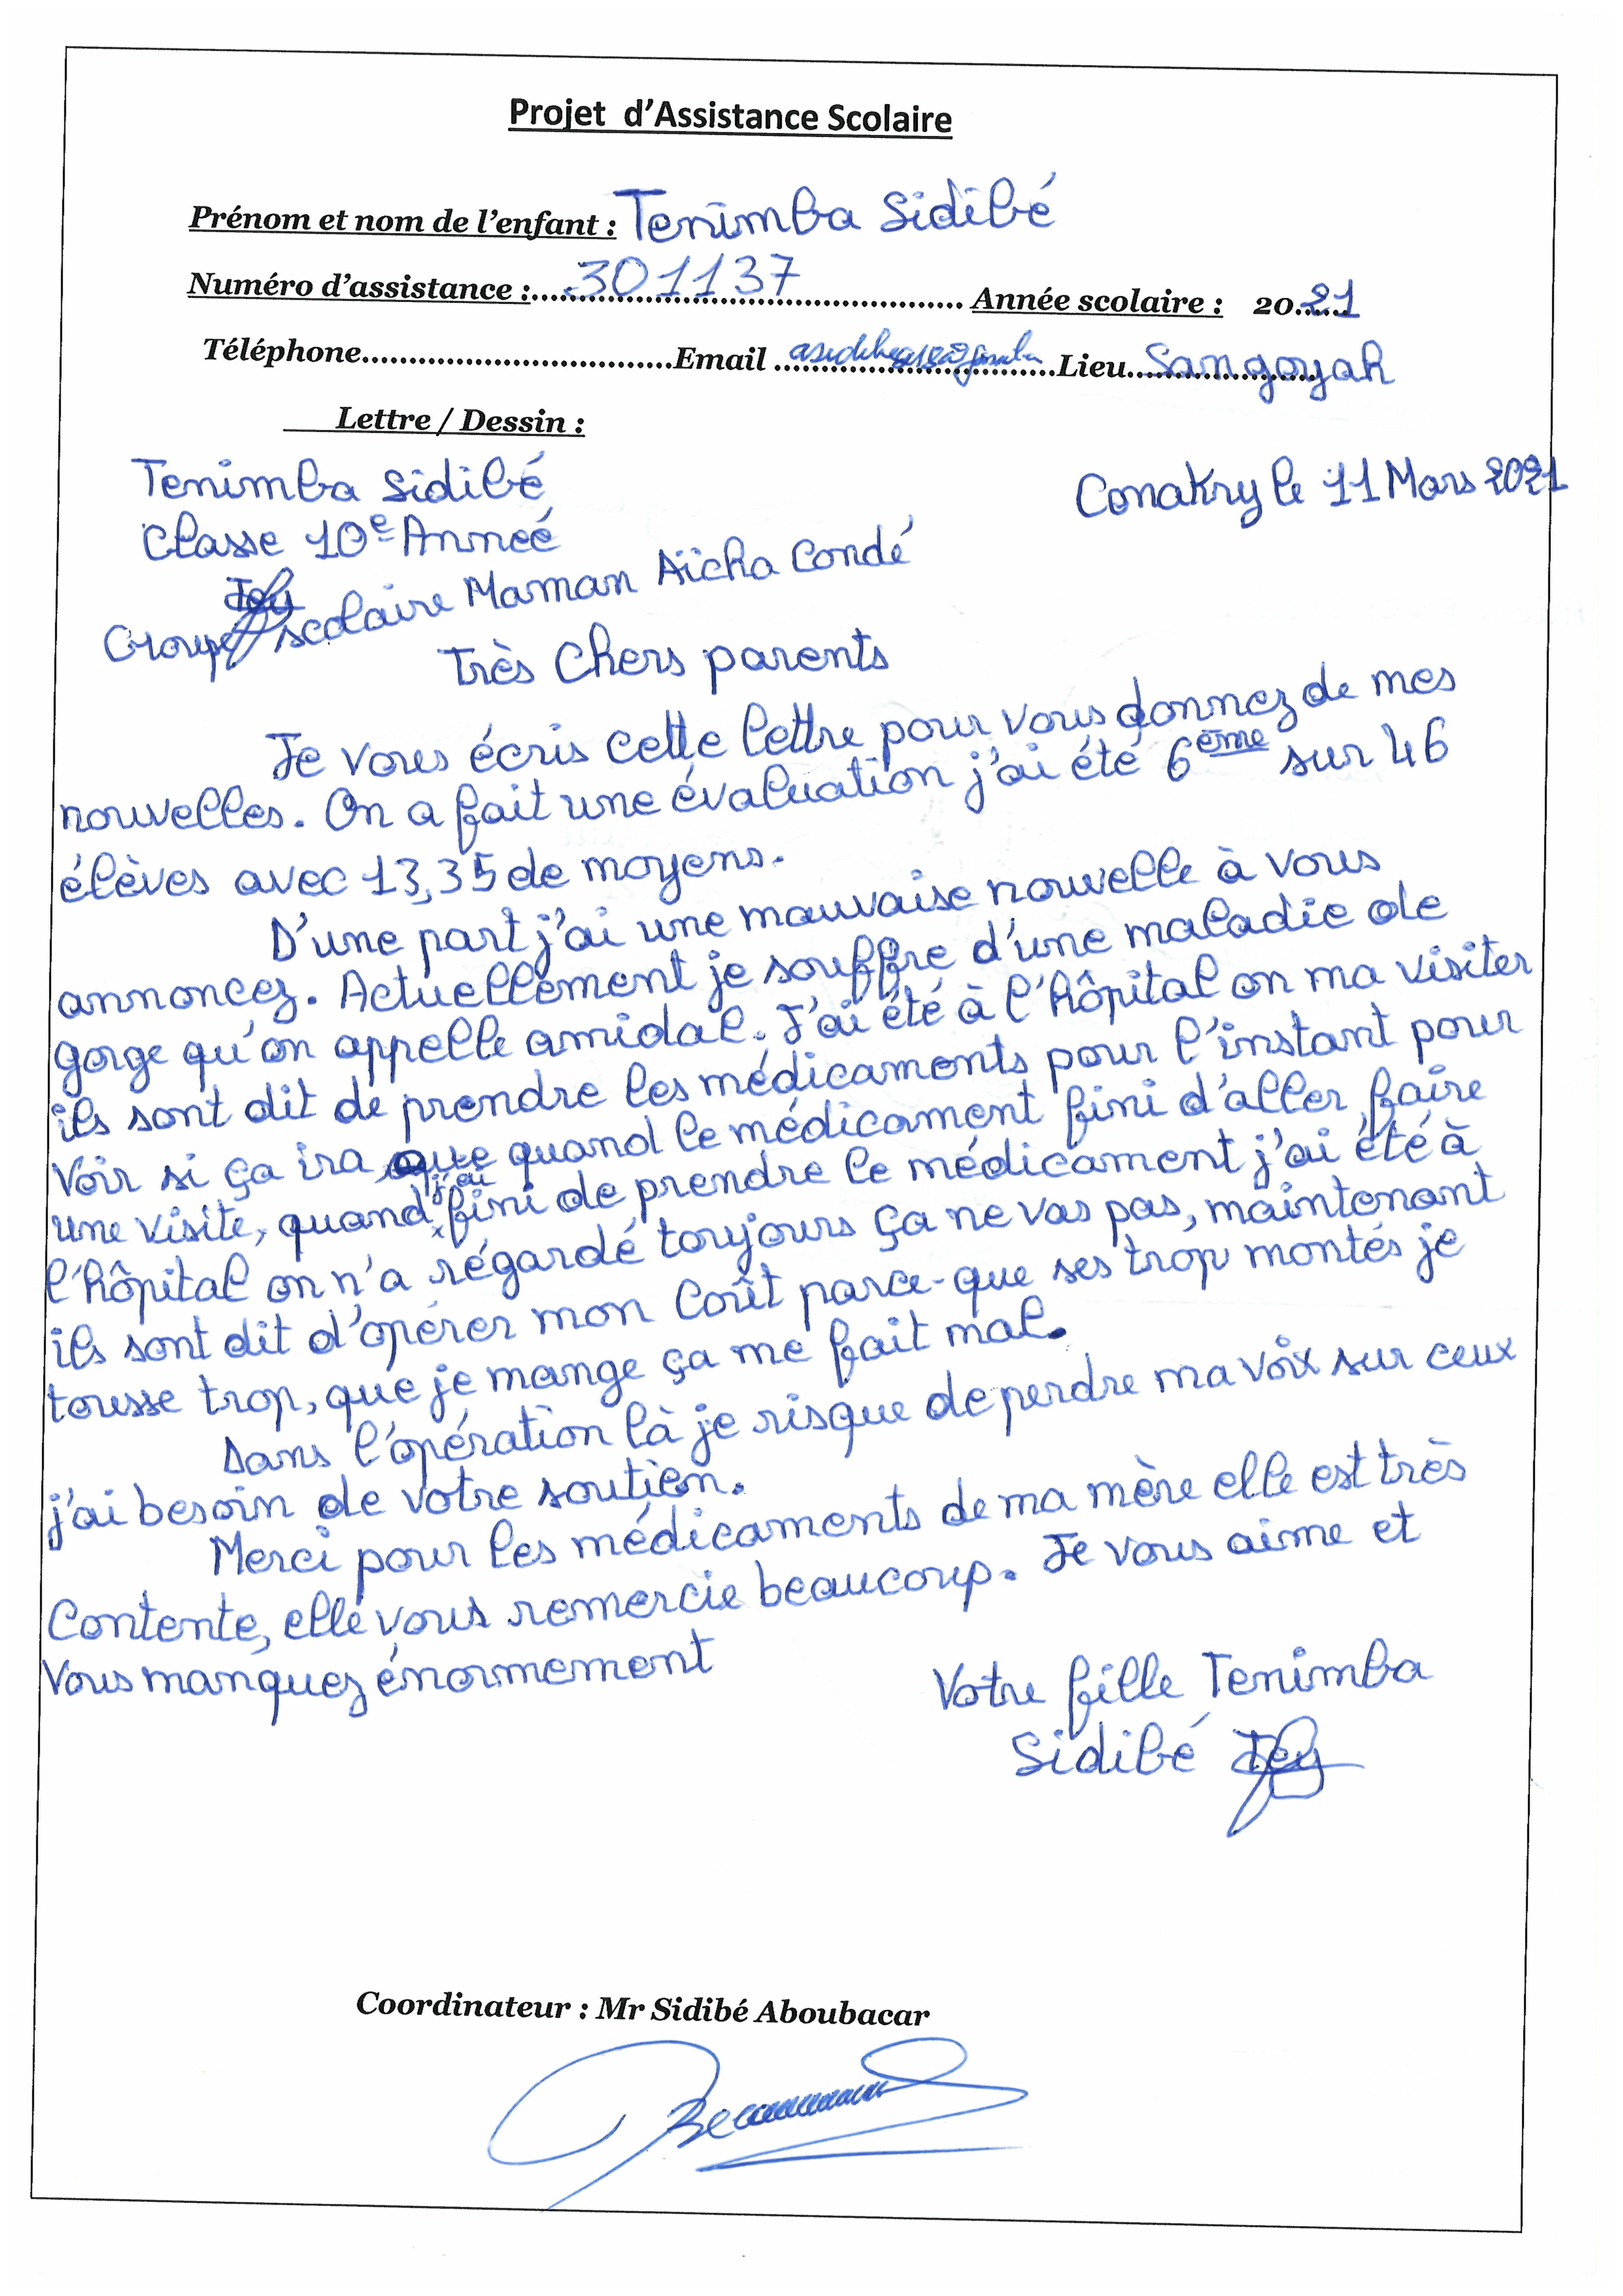 Projet d'Assistance Scolaire
Prénom et nom de l'enfant : Tenimba Sidibé
Numéro d'assistance :....301137.... Année scolaire : 20..21
Téléphone..............................Email ..............................Lieu..Sangoyah
Lettre / Dessin :
Tenimba Sidibé
Conakry le 11 Mars 2021
Classe 10e Anneé
Groupe scolaire Maman Aïcha Condé
Très Chers parents
Je vous écris cette lettre pour vous donnez de mes
nouvelles. On a fait une évaluation j'ai été 6ème sur 46
élèves avec 13,35 de moyens.
D'une part j'ai une mauvaise nouvelle à vous
annoncez. Actuellement je souffre d'une maladie de
gorge qu'on appelle amidal. J'ai été à l'hôpital on ma visiter
ils sont dit de prendre les médicaments pour l'instant pour
Voir si ça ira que quand le médicament fini d'aller faire
une visite, quand j'ai fini de prendre le médicament j'ai été à
l'hôpital on n'a régardé toujours ça ne vas pas, maintenant
ils sont dit d'opérer mon Coût parce-que ses trop montés je
tousse trop, que je mange ça me fait mal.
Dans l'opération là je risque de perdre ma voix sur ceux
j'ai besoin de votre soutien.
Merci pour les médicaments de ma mère elle est très
Contente, elle vous remercie beaucoup. Je vous aime et
Vous manquez énormement
Votre fille Tenimba
Sidibé
Coordinateur : Mr Sidibé Aboubacar